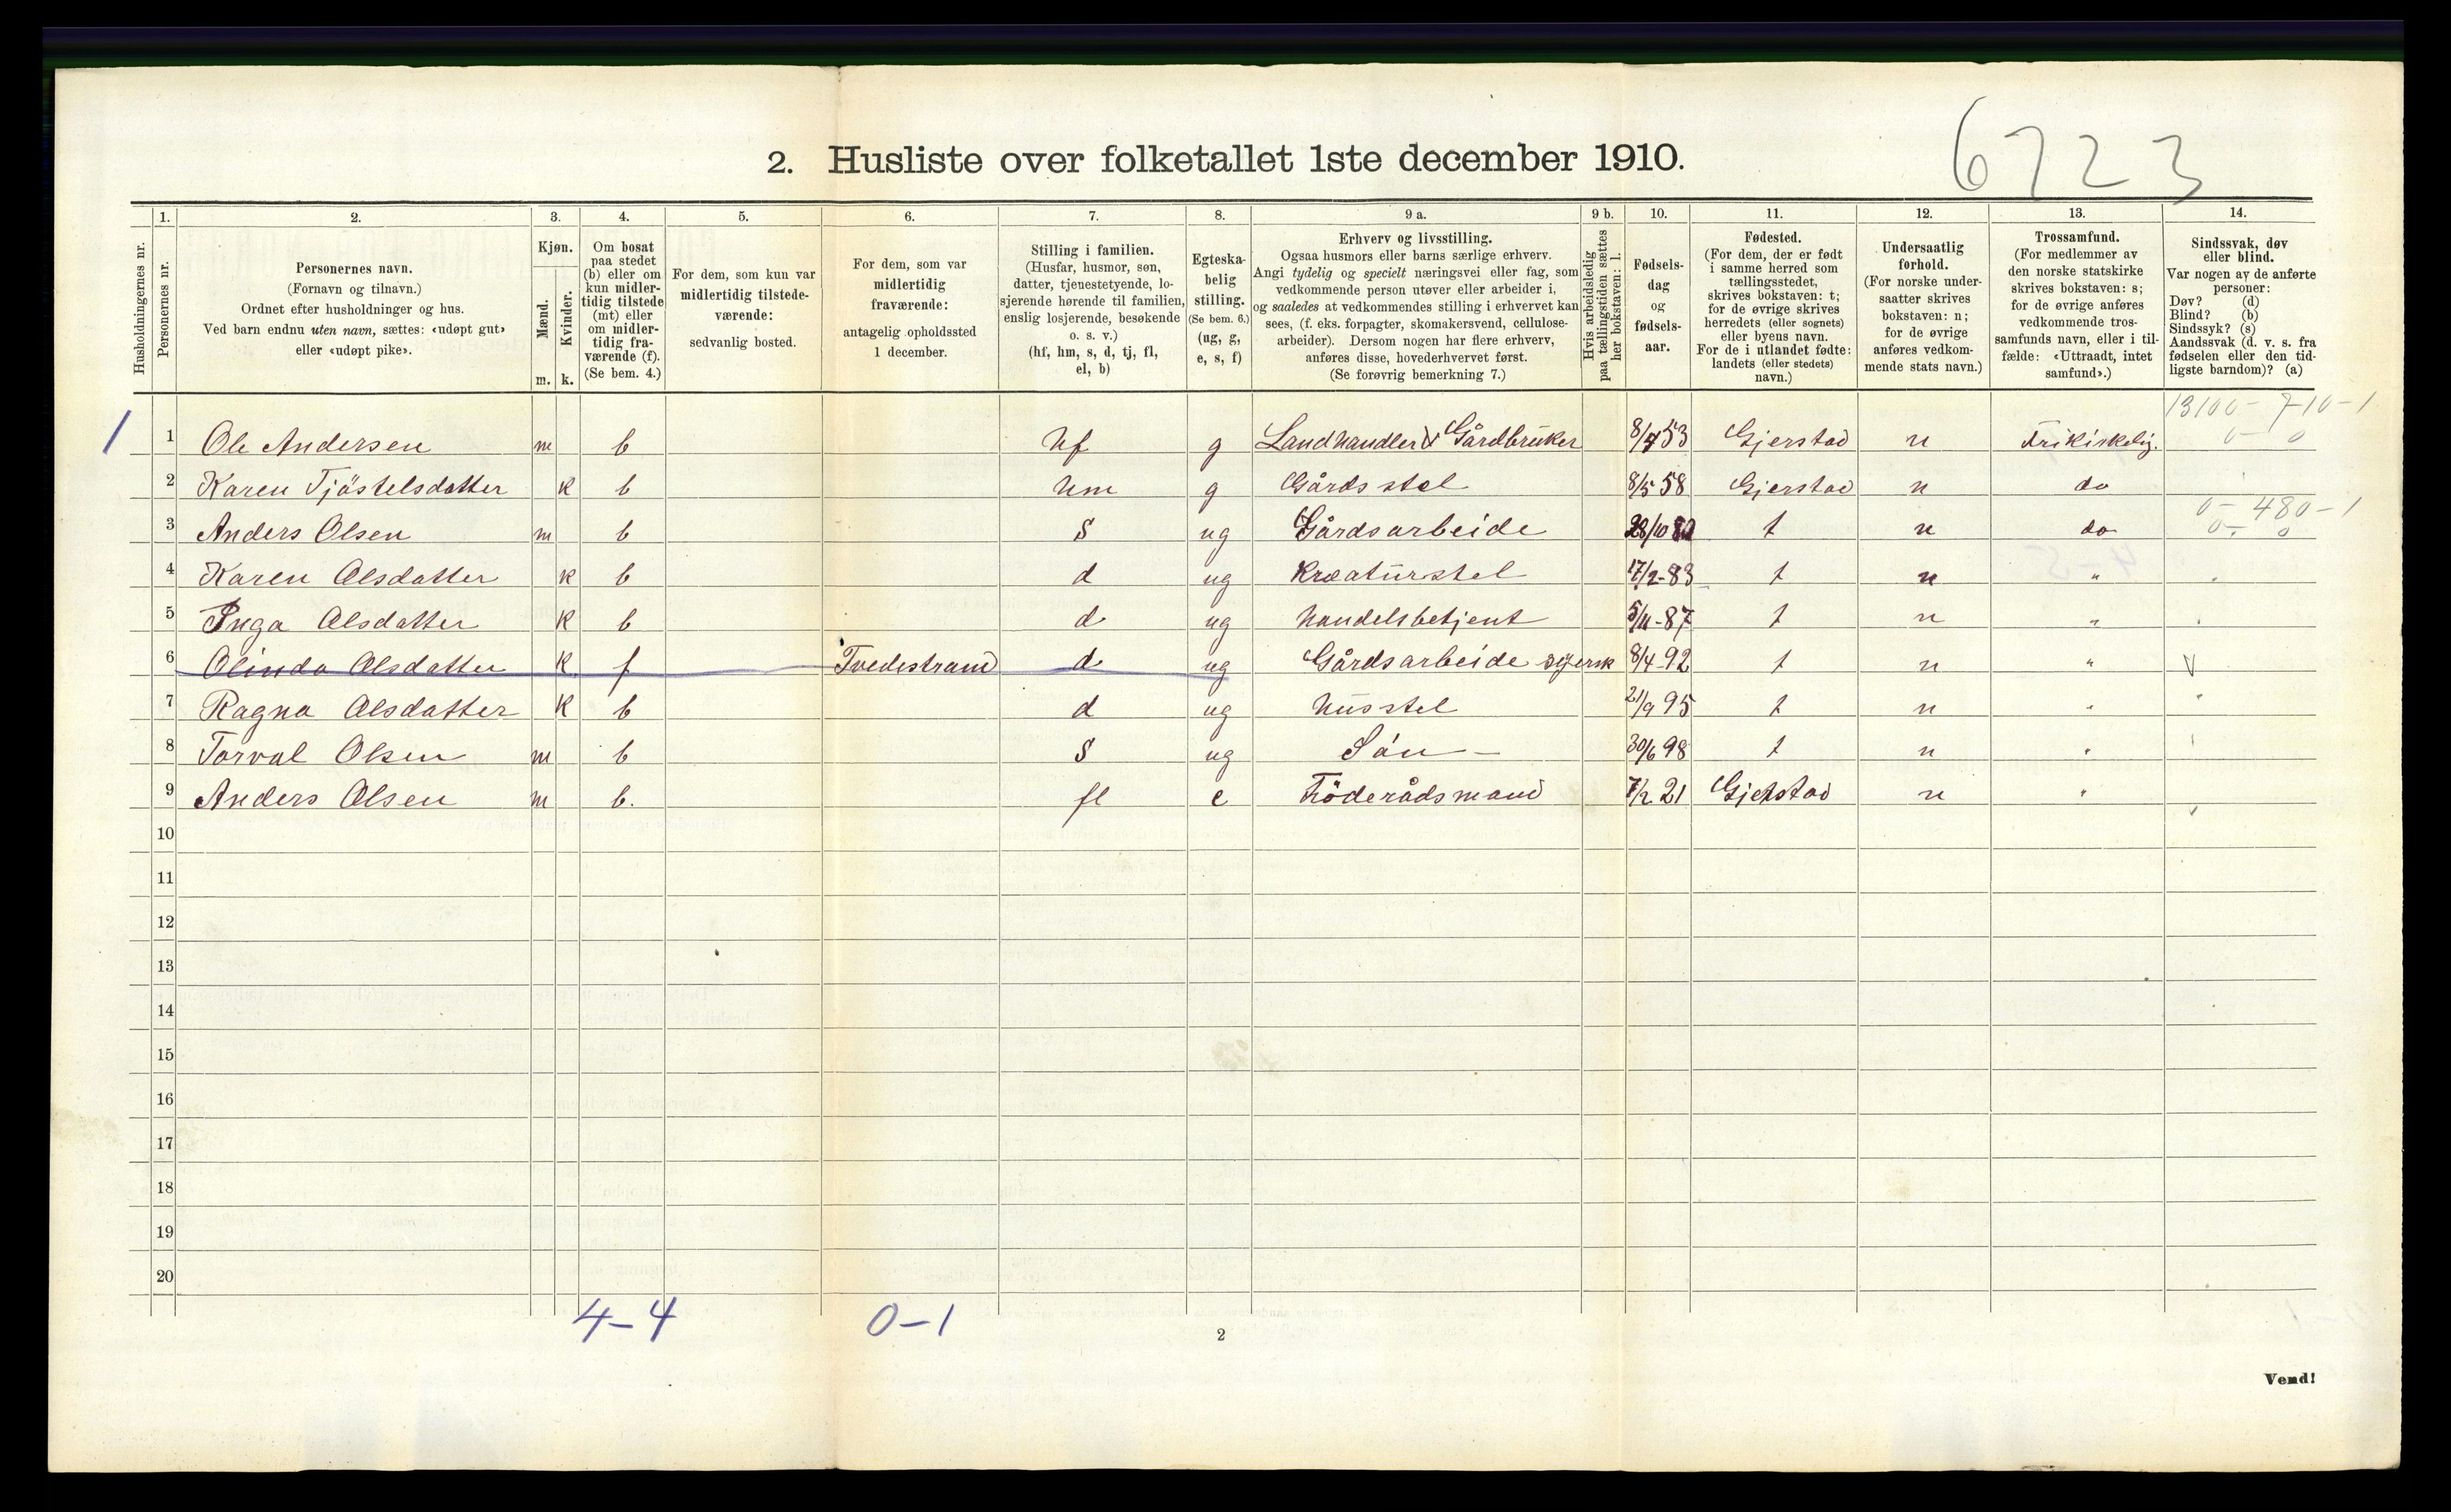 6723
2. Husliste over folketallet 1ste december 1910.
Husholdningernes nr.
1. Personernes nr.
2. Personernes navn.
(Fornavn og tilnavn.)
Ordnet efter husholdninger og hus.
Ved barn endnu uten navn, sættes: «udøpt gut»
eller «udøpt pike».
3. Kjøn.
Mænd. Kvinder.
m. k.
4. Om bosat
paa stedet
(b) eller om
kun midler-
tidig tilstede
(mt) eller
om midler-
tidig fra-
værende (f).
(Se bem. 4.)
5. For dem, som kun var
midlertidig tilstede-
værende:
sedvanlig bosted.
6. For dem, som var
midlertidig
fraværende:
antagelig opholdssted
1 december.
7. Stilling i familien.
(Husfar, husmor, søn,
datter, tjenestetyende, lo-
sjerende hørende til familien,
enslig losjerende, besøkende
o. s. v.)
(hf, hm, s, d, tj, fl,
el, b)
8. Egteska-
belig
stilling.
(Se bem. 6.)
(ug, g,
e, s, f)
9 a. Erhverv og livsstilling.
Ogsaa husmors eller barns særlige erhverv.
Angi tydelig og specielt næringsvei eller fag, som
vedkommende person utøver eller arbeider i,
og saaledes at vedkommendes stilling i erhvervet kan
sees, (f. eks. forpagter, skomakersvend, cellulose-
arbeider). Dersom nogen har flere erhverv,
anføres disse, hovederhvervet først.
(Se forøvrig bemerkning 7.)
9 b. Hvis arbeidsledig
paa tællingstiden sættes
her bokstaven: l.
10. Fødsels-
dag
og
fødsels-
aar.
11. Fødested.
(For dem, der er født
i samme herred som
tællingsstedet,
skrives bokstaven: t;
for de øvrige skrives
herredets (eller sognets)
eller byens navn.
For de i utlandet fødte:
landets (eller stedets)
navn.)
12. Undersaatlig
forhold.
(For norske under-
saatter skrives
bokstaven: n;
for de øvrige
anføres vedkom-
mende stats navn.)
13. Trossamfund.
(For medlemmer av
den norske statskirke
skrives bokstaven: s;
for de øvrige anføres
vedkommende tros-
samfunds navn, eller i til-
fælde: «Uttraadt, intet
samfund».)
14. Sindssvak, døv
eller blind.
Var nogen av de anførte
personer:
Døv? (d)
Blind? (b)
Sindssyk? (s)
Aandssvak (d. v. s. fra
fødselen eller den tid-
ligste barndom)? (a)
13100 - 710 - 1
1 1 Ole Andersen m b hf g Landhandler & Gårdbruker 8/7 53 Gjerstad n Frikirkelig. 0 - 0
2 Karen Tjöstelsdatter k b hm g Gårdsstel 8/5 58 Gjerstad n do
0 - 480 - 1
3 Anders Olsen m b S ug Gårdsarbeide 28/10 80 t n do 0 - 0
4 Karen Olsdatter k b d ug Kreaturstel 17/2-83 t n "
5 Inga Olsdatter k b d ug Handelsbetjent 5/11-87 t n "
6 Olinda Olsdatter k f Tvedestrand d ug Gårdsarbeide syersk 8/4-92 t n "
7 Ragna Olsdatter k b d ug Husstel 21/9 95 t n "
8 Torval Olsen m b S ug Sön - 30/6 98 t n "
9 Anders Olsen m b. fl e Föderådsmand 7/2 21 Gjerstad n "
10
11
12
13
14
15
16
17
18
19
20
4-4 0-1
2
Vend!